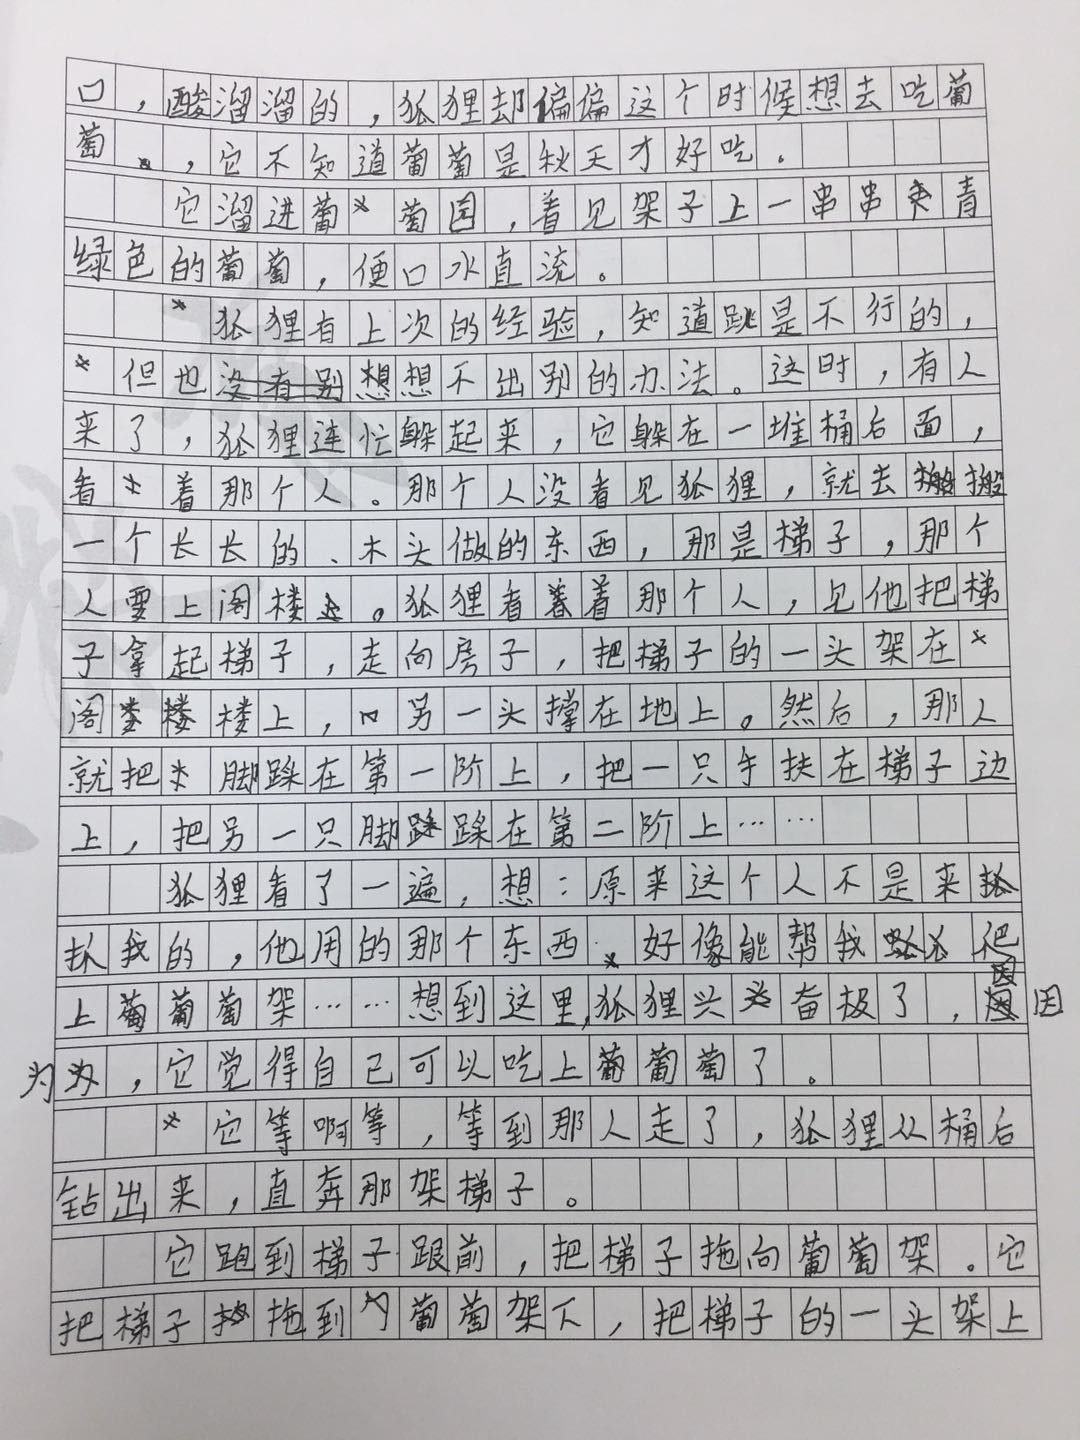 口，酸溜溜的，狐狸却偏偏这个时候想去吃葡
萄，它不知道葡萄是秋天才好吃。
它溜进葡萄园，着见架子上一串串青
绿色的葡萄，便口水直流。
狐狸有上次的经验，知道跳是不行的，
但也想想不出别的办法。这时，有人
来了，狐狸连忙躲起来，它躲在一堆桶后面，
看着那个人。那个人没看见狐狸，就去搬
一个长长的、木头做的东西，那是梯子，那个
人要上阁楼。狐狸看着那个人，见他把梯
子拿起梯子，走向房子，把梯子的一头架在
阁楼上，另一头撑在地上。然后，那人
就把脚踩在第一阶上，把一只手扶在梯子边
上，把另一只脚踩在第二阶上……
狐狸看了一遍，想：原来这个人不是来
抓我的，他用的那个东西好像能帮我爬
上葡葡萄架……想到这里，狐狸兴奋极了，因
为，它觉得自己可以吃上葡葡萄了。
它等啊等，等到那人走了，狐狸从桶后
钻出来，直奔那架梯子。
它跑到梯子跟前，把梯子拖向葡萄架。它
把梯子拖到葡萄架下，把梯子的一头架上